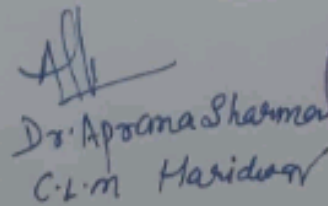 Dr. Aprana Sharma
C.L.M Haridwar